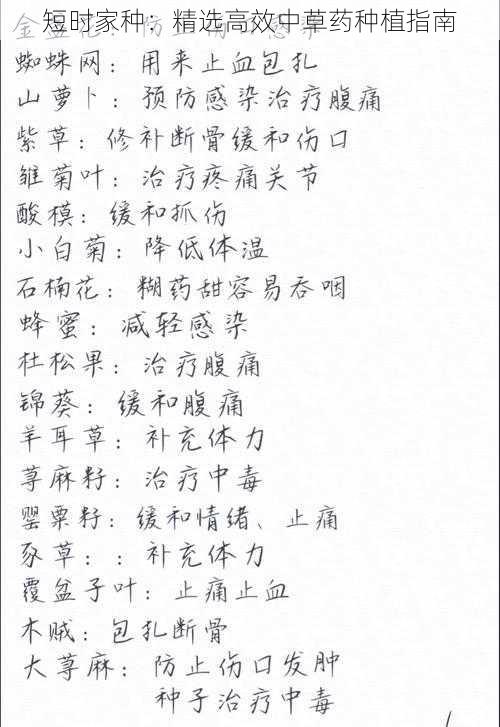 短时家种：精选高效中草药种植指南
金盏花：防止
蜘蛛网：用来止血包扎
山萝卜：预防感染治疗腹痛
紫草：修补断骨缓和伤口
雏菊叶：治疗疼痛关节
酸模：缓和抓伤
小白菊：降低体温
石楠花：糊药甜容易吞咽
蜂蜜：减轻感染
杜松果：治疗腹痛
锦葵：缓和腹痛
羊耳草：补充体力
荨麻籽：治疗中毒
罂粟籽：缓和情绪、止痛
豕草：：补充体力
覆盆子叶：止痛止血
木贼：包扎断骨
大荨麻：防止伤口发肿
种子治疗中毒